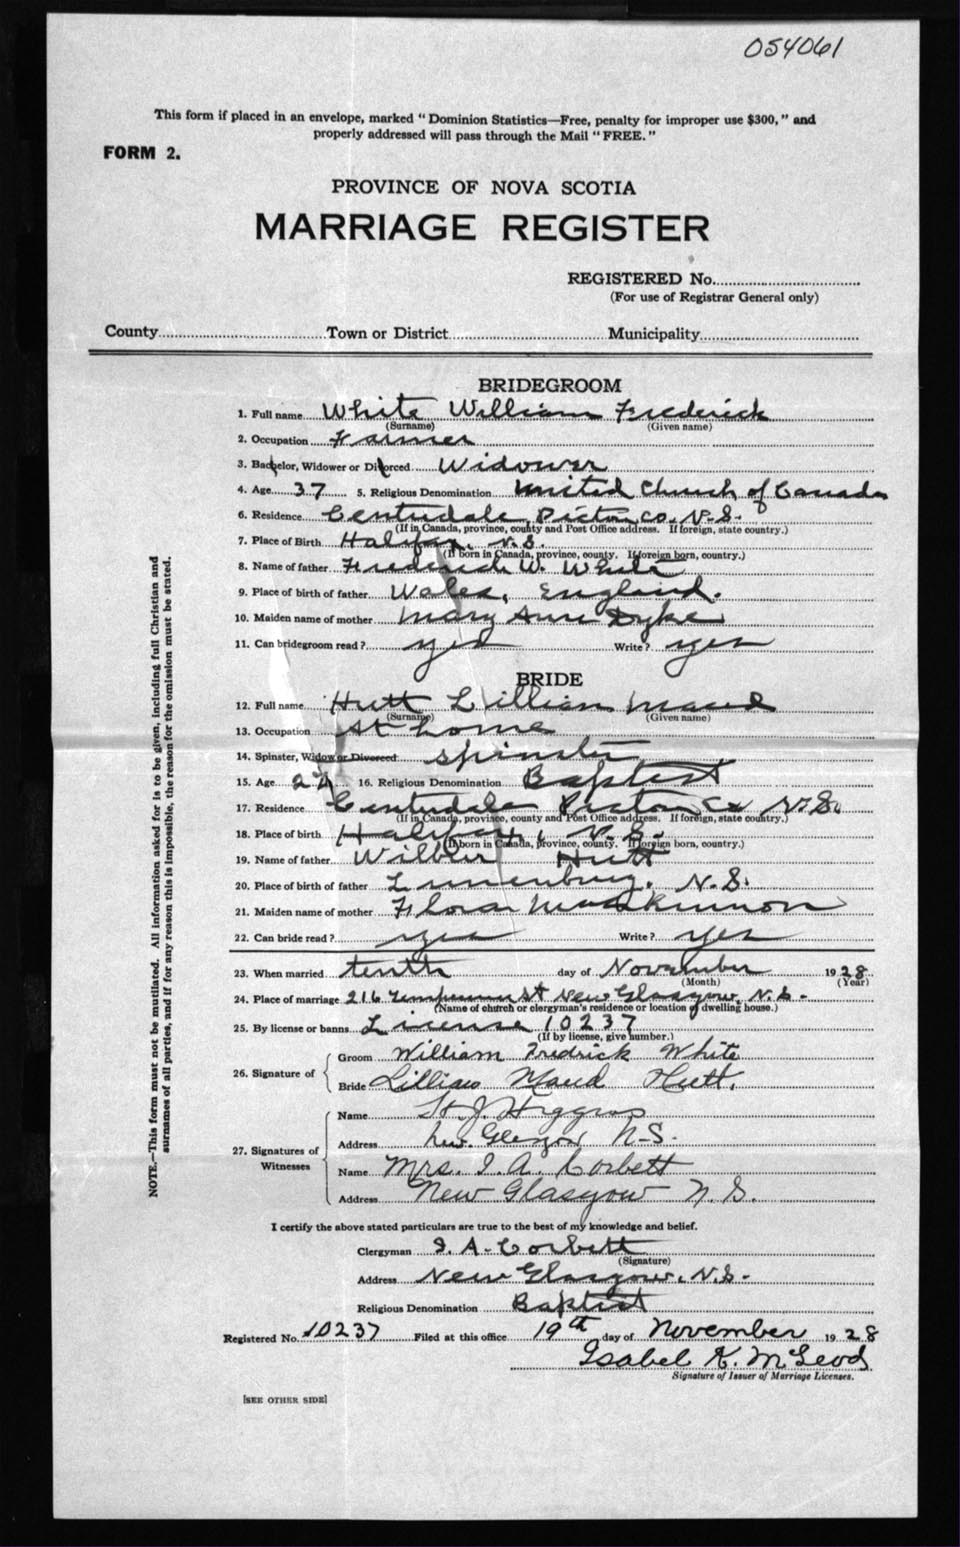 054061
This form if placed in an envelope, marked "Dominion Statistics—Free, penalty for improper use $300," and
properly addressed will pass through the Mail "FREE."
FORM 2.
PROVINCE OF NOVA SCOTIA
MARRIAGE REGISTER
REGISTERED No.
(For use of Registrar General only)
County Town or District Municipality
BRIDEGROOM
1. Full name White William Frederick
(Surname) (Given name)
2. Occupation Farmer
3. Bachelor, Widower or Divorced Widower
4. Age 37 5. Religious Denomination United Church of Canada
6. Residence Centredale Pictou Co. N.S.
(If in Canada, province, county and Post Office address. If foreign, state country.)
7. Place of Birth Halifax, N.S.
(If born in Canada, province, county. If foreign born, country.)
8. Name of father Frederick W. White
9. Place of birth of father Wales, England.
10. Maiden name of mother Mary Ann Dyke
11. Can bridegroom read? yes Write? yes
BRIDE
12. Full name Hutt Lillian Maud
(Surname) (Given name)
13. Occupation At home
14. Spinster, Widow or Divorced Spinster
15. Age 16. Religious Denomination Baptist
17. Residence Centredale Pictou Co N.S.
(If in Canada, province, county and Post Office address. If foreign, state country.)
18. Place of birth Halifax, N.S.
(If born in Canada, province, county. If foreign born, country.)
19. Name of father Wilbur Hutt
20. Place of birth of father Lunenburg, N.S.
21. Maiden name of mother Flora MacKinnon
22. Can bride read? yes Write? yes
23. When married tenth day of November 1928
(Month) (Year)
24. Place of marriage 216 St New Glasgow, N.S.
(Name of church or clergyman's residence or location of dwelling house.)
25. By license or banns License 10237
(If by license, give number.)
26. Signature of
Groom William Fredrick White
Bride Lillian Maud Hutt.
27. Signatures of Witnesses
Name J. Higgins
Address New Glasgow N.S.
Name Mrs. I. A. Corbett
Address New Glasgow N.S.
I certify the above stated particulars are true to the best of my knowledge and belief.
Clergyman I. A. Corbett
(Signature)
Address New Glasgow, N.S.
Religious Denomination Baptist
Registered No. 10237 Filed at this office 19th day of November 1928
Isabel K. McLeod
Signature of Issuer of Marriage Licenses.
[SEE OTHER SIDE]
NOTE.—This form must not be mutilated. All information asked for is to be given, including full Christian and
surnames of all parties, and if for any reason this is impossible, the reason for the omission must be stated.